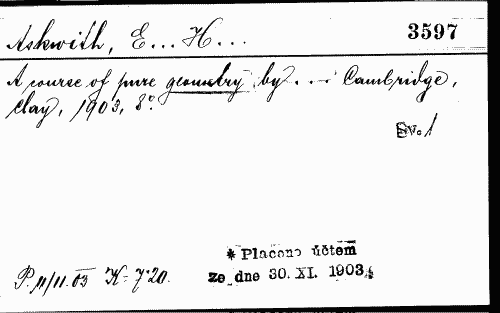 Askwith, E... H...
3597
A course of pure geometry by... — Cambridge,
Clay, 1903, 8°.
Sv. 1
P. 11/11.03 K- 7.20.
* Placeno účtem
ze dne 30. XI. 1903